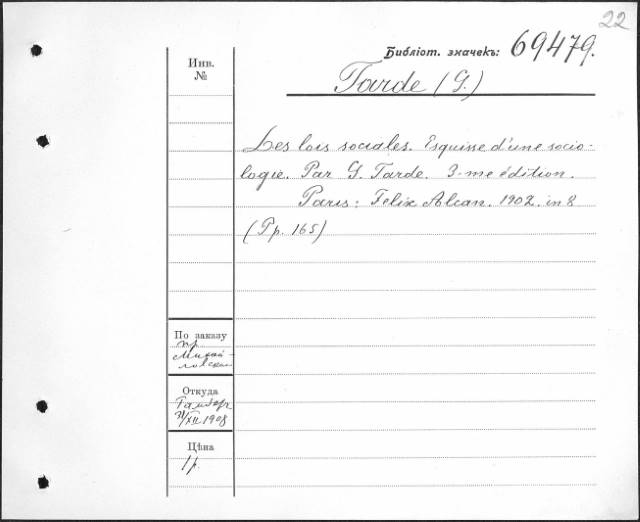 22
Библіот. значекъ: 69479.
Инв.
№
Tarde (G.)
Les lois sociales. Esquisse d'une socio-
logie. Par G. Tarde. 3-me édition.
Paris: Felix Alcan. 1902. in 8
(Pp. 165)
По заказу
пр
Михай-
ловскаго
Откуда
31/XII 1908
Цѣна
1 р.